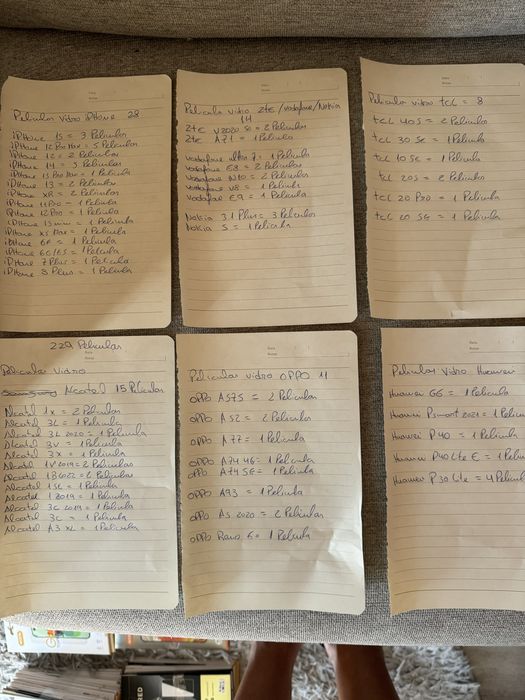 Peliculas Vidro iPHone 28
iPHone 15 = 3 Peliculas
iPHone 12 Pro Max = 5 Peliculas
iPHone 12 = 2 Peliculas
iPHone 14 = 5 Peliculas
iPHone 13 Pro Max = 1 Pelicula
iPHone 13 = 2 Peliculas
iPHone XR = 2 Peliculas
iPHone 11 Pro = 1 Pelicula
iPHone 12 Pro = 1 Pelicula
iPHone 13 mini = 1 Pelicula
iPHone XS Max = 1 Pelicula
iPHone 6P = 1 Pelicula
iPHone 6G/6S = 1 Pelicula
iPHone 7 Plus = 1 Pelicula
iPHone 8 Plus = 1 Pelicula
Peliculas vidro Zte/vodafone/Nokia
14
Zte V2020 Se = 2 Peliculas
Zte A71 = 1 Pelicula
Vodafone ultra 7 = 1 Pelicula
Vodafone E8 = 2 Peliculas
Vodafone N10 = 2 Peliculas
Vodafone V8 = 1 Pelicula
Vodafone E9 = 1 Pelicula
Nokia 3.1 Plus = 3 Peliculas
Nokia 5 = 1 Pelicula
Peliculas vidro tcl = 8
tcl 40S = 2 Peliculas
tcl 30 Se = 1 Pelicula
tcl 10 Se = 1 Pelicula
tcl 20S = 2 Peliculas
tcl 20 Pro = 1 Pelicula
tcl 20 SE = 1 Pelicula
229 Peliculas
Peliculas Vidro
Alcatel 15 Peliculas
Alcatel 1x = 2 Peliculas
Alcatel 3L = 1 Pelicula
Alcatel 3L 2020 = 1 Pelicula
Alcatel 3V = 1 Pelicula
Alcatel 3x = 1 Pelicula
Alcatel 1V 2019 = 2 Peliculas
Alcatel 1B 2022 = 2 Peliculas
Alcatel 1SE = 1 Pelicula
Alcatel 1 2019 = 1 Pelicula
Alcatel 3C 2019 = 1 Pelicula
Alcatel 3C = 1 Pelicula
Alcatel A3 XL = 1 Pelicula
Peliculas vidro OPPO 11
OPPO A57S = 2 Peliculas
OPPO A52 = 2 Peliculas
OPPO A77 = 1 Pelicula
OPPO A74 4G = 1 Pelicula
OPPO A74 5G = 1 Pelicula
OPPO A93 = 1 Pelicula
OPPO A5 2020 = 2 Peliculas
OPPO Reno 6 = 1 Pelicula
Peliculas Vidro Huawei
Huawei G6 = 1 Pelicula
Huawei Psmart 2021 = 1 Pelicu
Huawei P40 = 1 Pelicula
Huawei P40 Lite E = 1 Pelicu
Huawei P30 Lite = 4 Pelicula